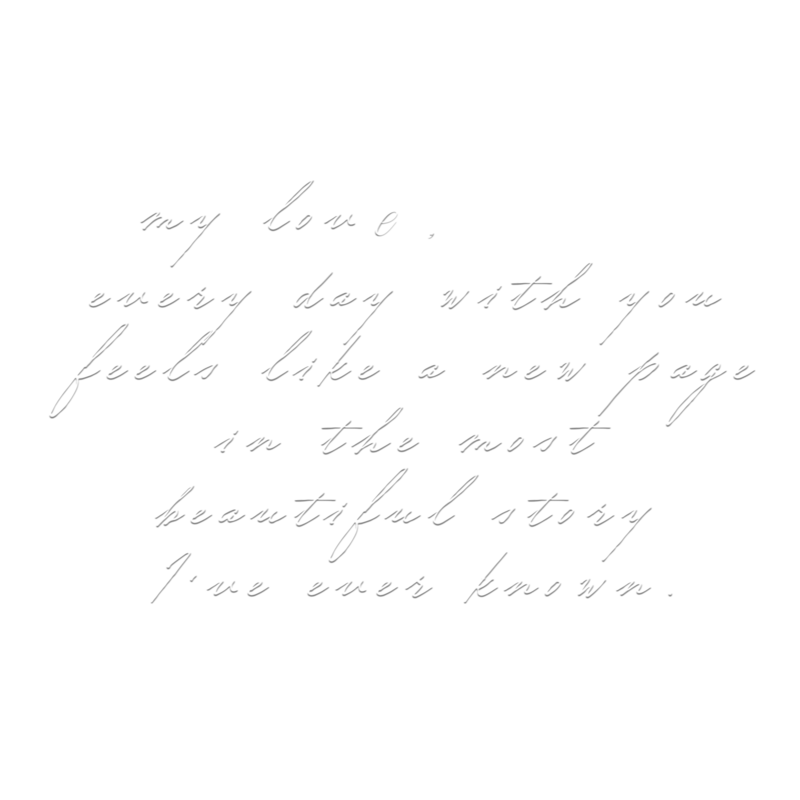 my love,
every day with you
feels like a new page
in the most
beautiful story
I've ever known.